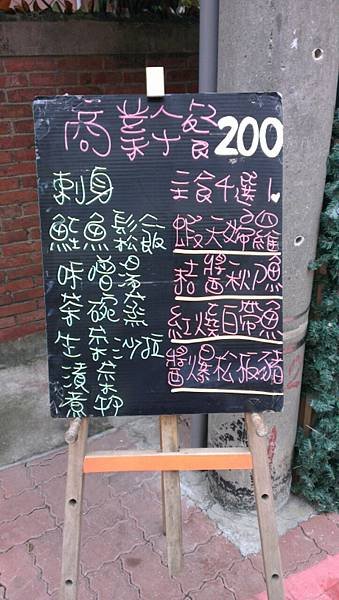 商業午餐200
刺身
鮭魚鬆飯
味噌湯
茶碗蒸
生菜沙拉
漬菜
煮物
主食4選1
蝦天婦羅
桔醬秋魚
紅燒白帶魚
醬爆松板豬